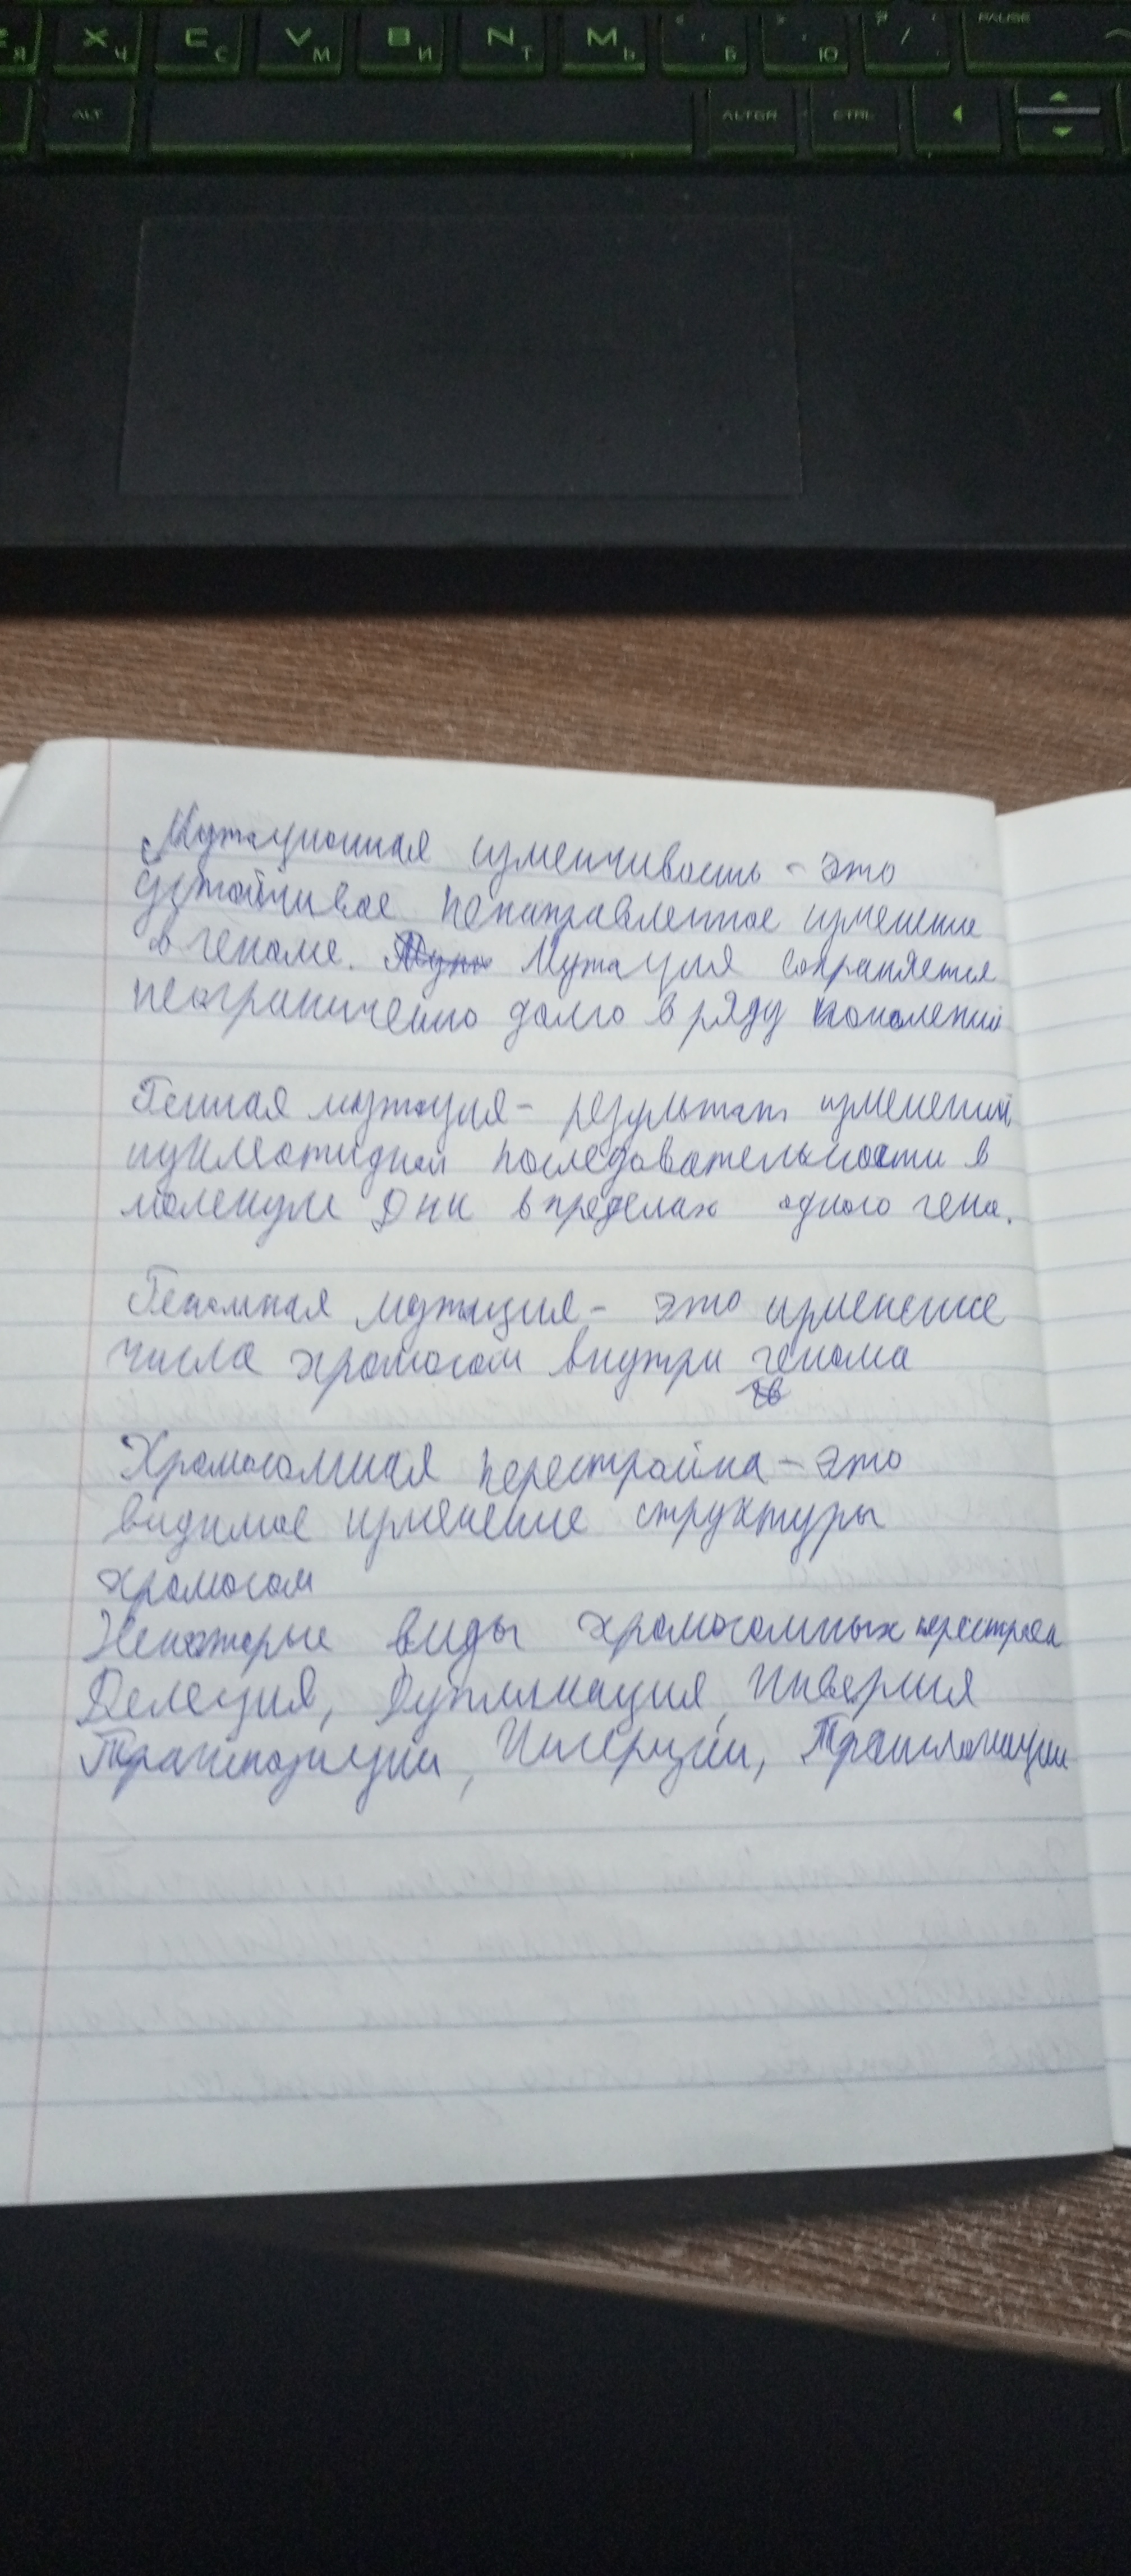 Я X Ч C С V М B И N Т M Ь Б Ю / PAUSE
ALT ALTGR CTRL
Мутационная изменчивость - это
устойчивое ненаправленное изменение
в геноме. Мутация сохраняется
неограниченно долго в ряду поколений
Генная мутация - результат изменений
нуклеотидной последовательности в
молекуле ДНК в пределах одного гена.
Геномная мутация - это изменение
числа хромосом внутри генома
Хромосомная перестройка - это
видимое изменение структуры
хромосом
Некоторые виды хромосомных перестроек
Делеция, Дупликация, Инверсия
Транспозиции, Инсерции, Транслокации